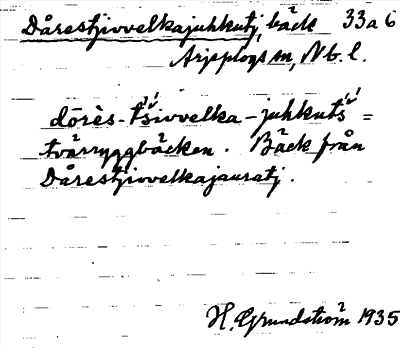 Dårestjivvelkajuhkutj, bäck 33a6
Arjeplogs sn, Nb. l.
dōrès-tśivvelka-juhkutś =
tvärryggbäcken. Bäck från
Dårestjivvelkajauratj.
H. Grundström 1935